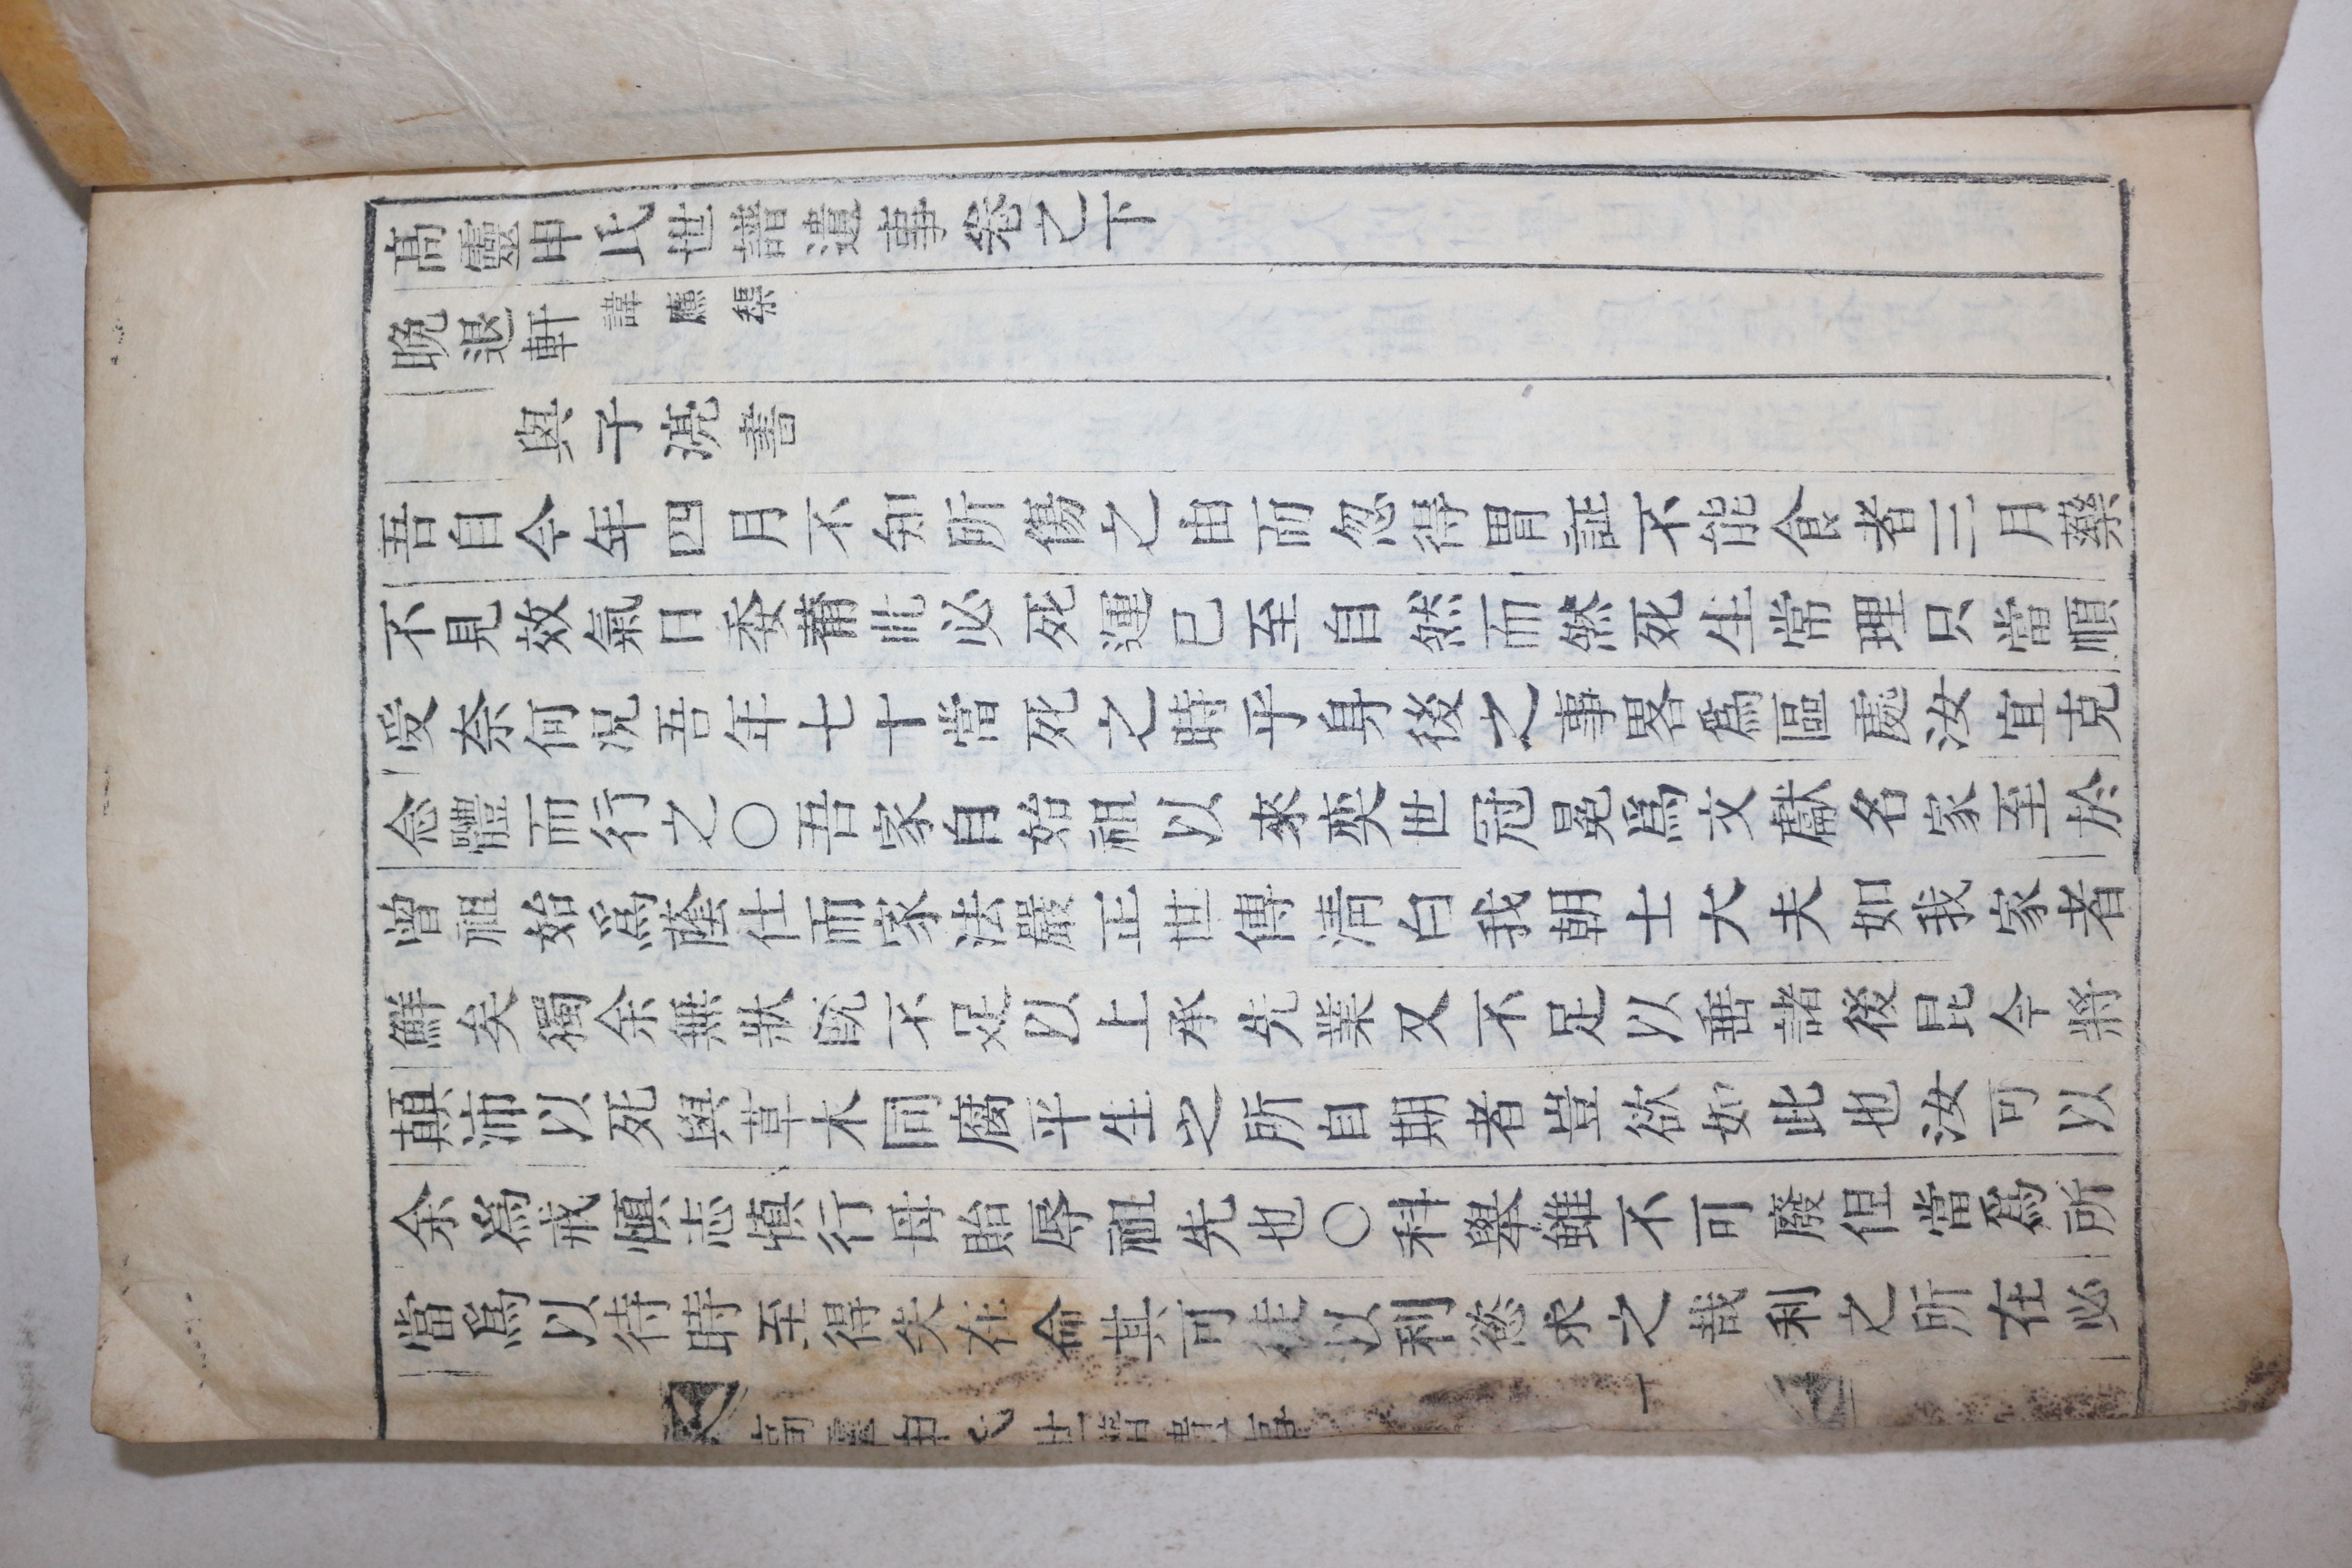 高靈申氏世譜遺事卷之下
晩退軒 諱應榘
與子湸書
吾自今年四月不知所傷之由而忽得胃証不能食者三月藥
不見效氣日委薾此必死運已至自然而然死生常理只當順
受奈何况吾年七十當死之時乎身後之事畧爲區處汝宜克
念體而行之〇吾家自始祖以來奕世冠冕爲文獻名家至於
曾祖始爲蔭仕而家法嚴正世傳淸白我朝士大夫如我家者
鮮矣獨余無狀旣不足以上承先業又不足以垂諸後昆今將
顚沛以死與草木同腐平生之所自期者豈欲如此也汝可以
余爲戒愼志愼行毋貽辱祖先也〇科擧雖不可廢但當爲所
當爲以待時至得失在命其可徒以利慾求之哉利之所在必
高靈申氏世譜遺事 一